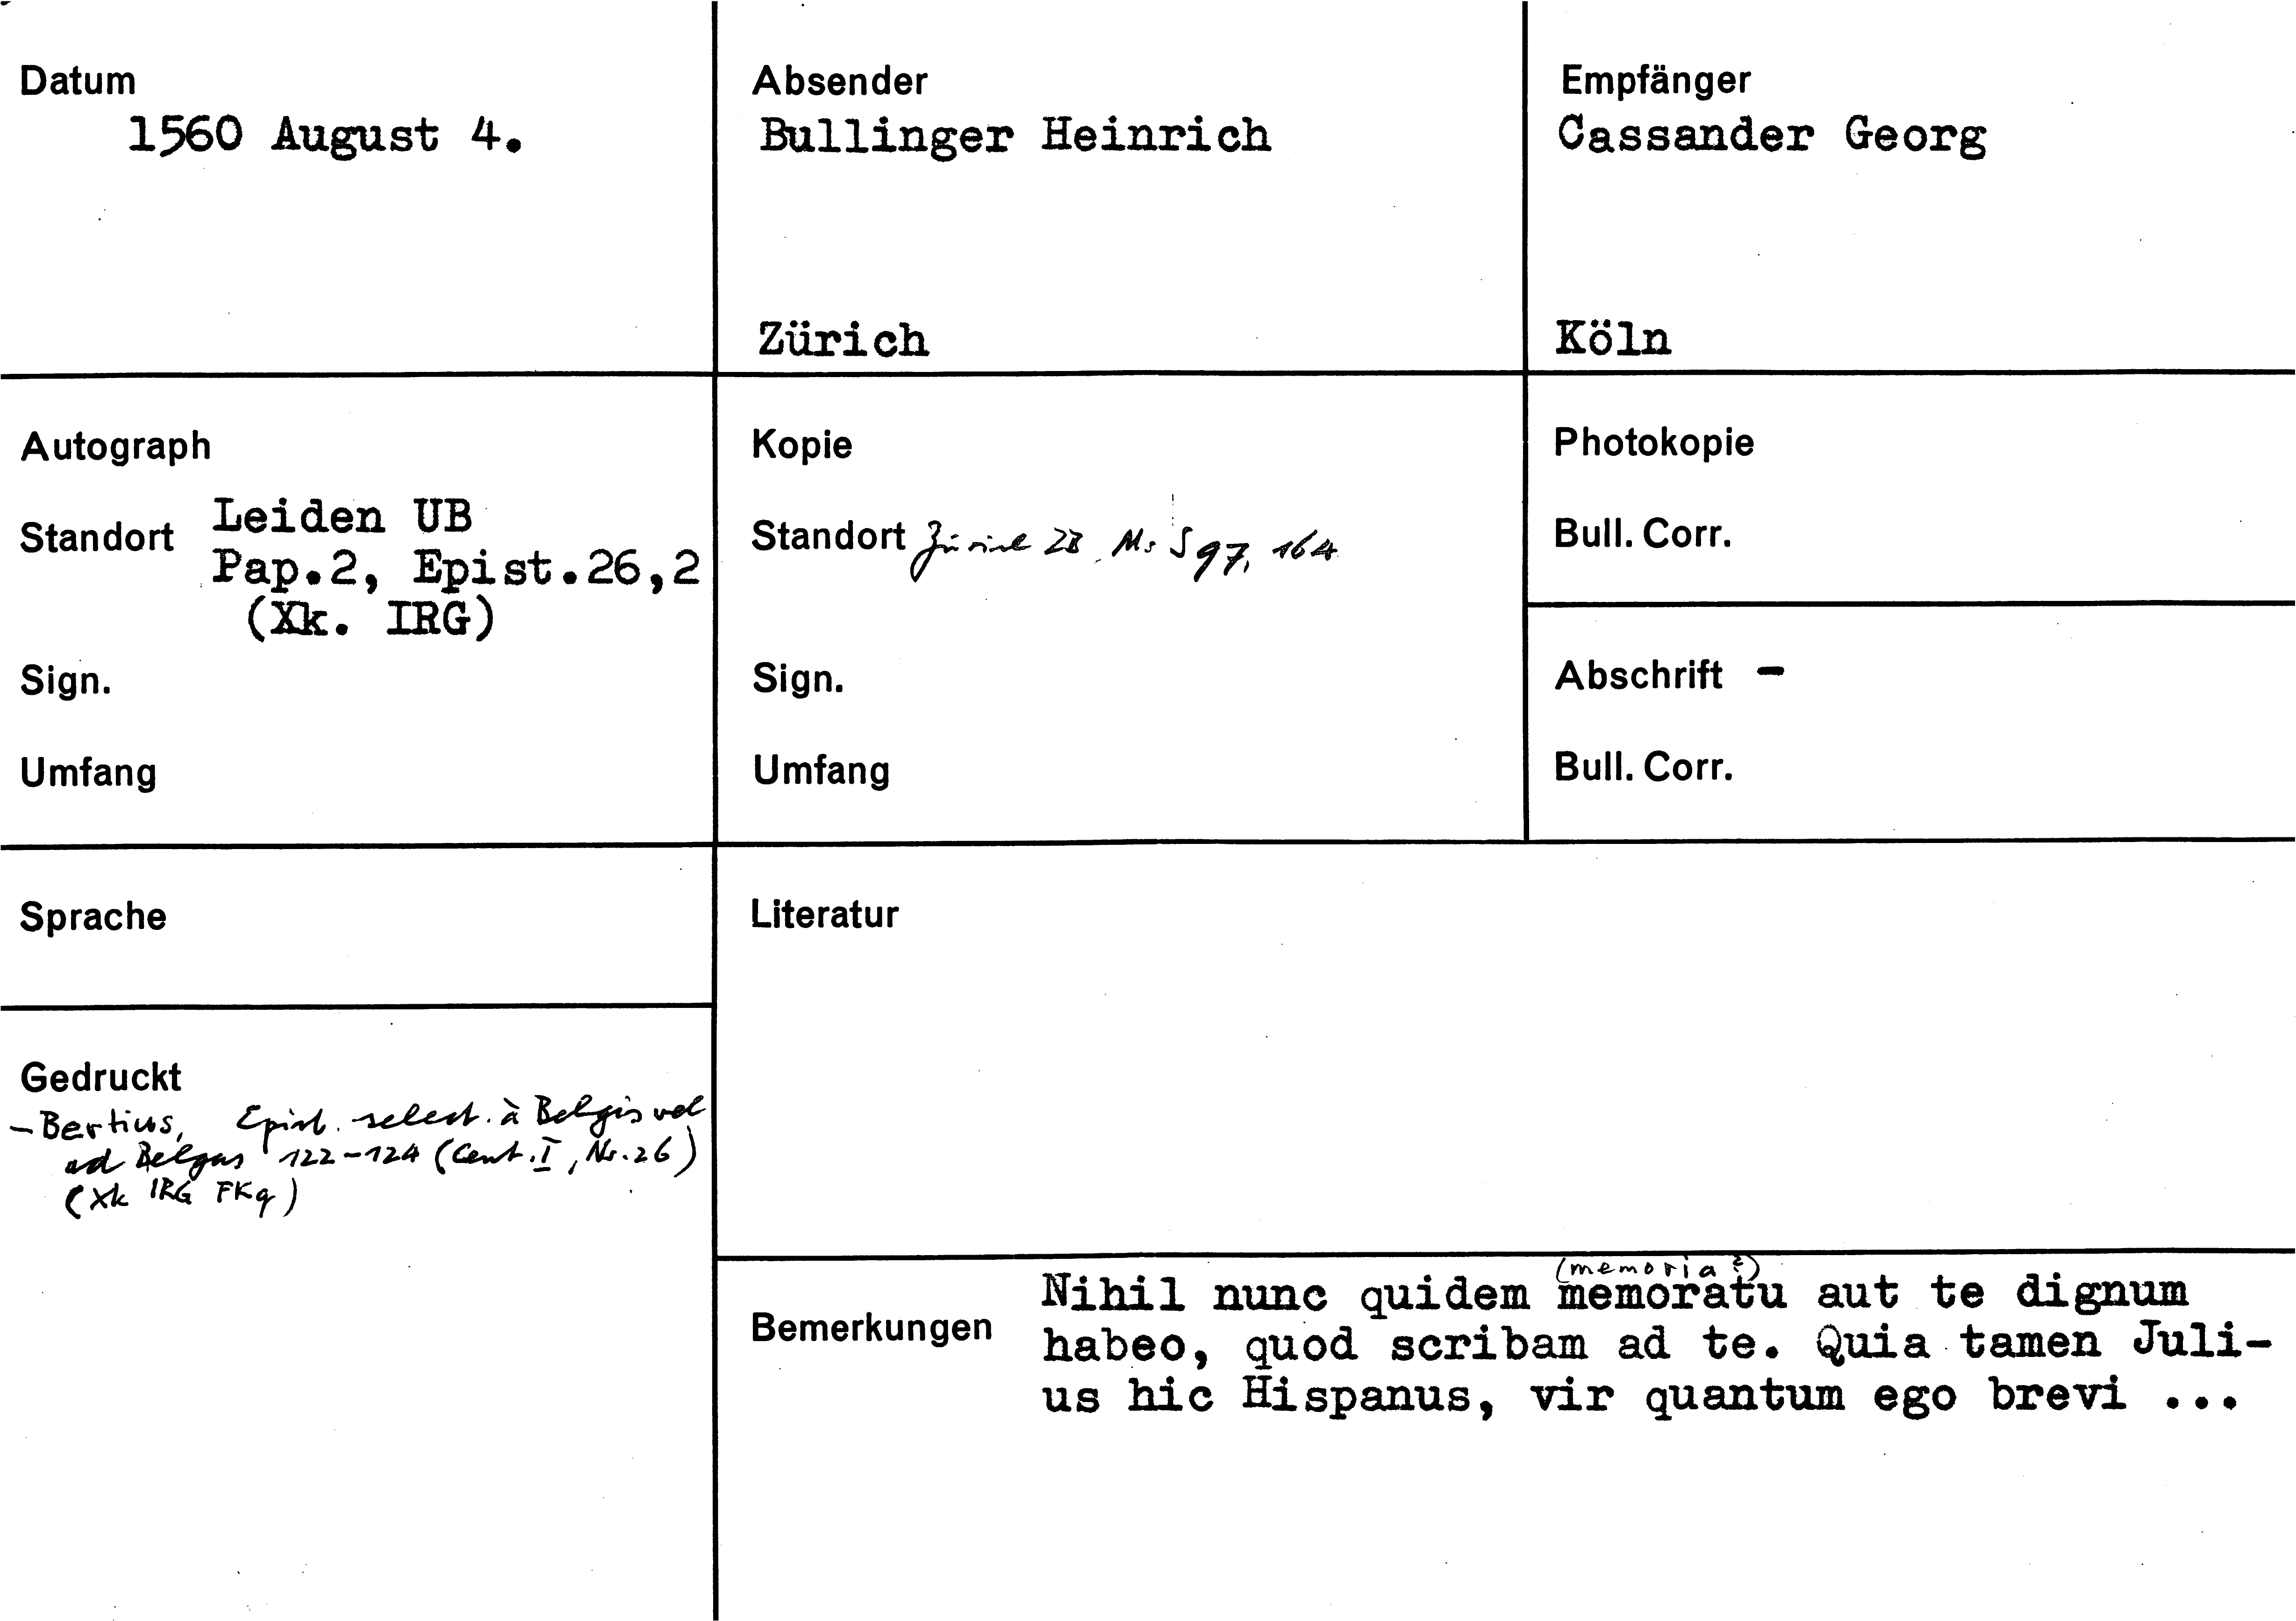 Datum
1560 August 4.
Absender
Bullinger Heinrich
Zürich
Empfänger
Cassander Georg
Köln
Autograph
Standort Leiden UB
Pap.2, Epist.26,2
(Xk. IRG)
Sign.
Umfang
Kopie
Standort Zürich ZB Ms S 97, 164
Sign.
Umfang
Photokopie
Bull. Corr.
Abschrift -
Bull. Corr.
Sprache
Literatur
Gedruckt
- Bertius, Epist. select. à Belgis vel
ad Belgas 122-124 (Cent. I, Nr. 26)
(Xk IRG FKq)
Bemerkungen
(memoria?)
Nihil nunc quidem memoratu aut te dignum
habeo, quod scribam ad te. Quia tamen Juli-
us hic Hispanus, vir quantum ego brevi ...